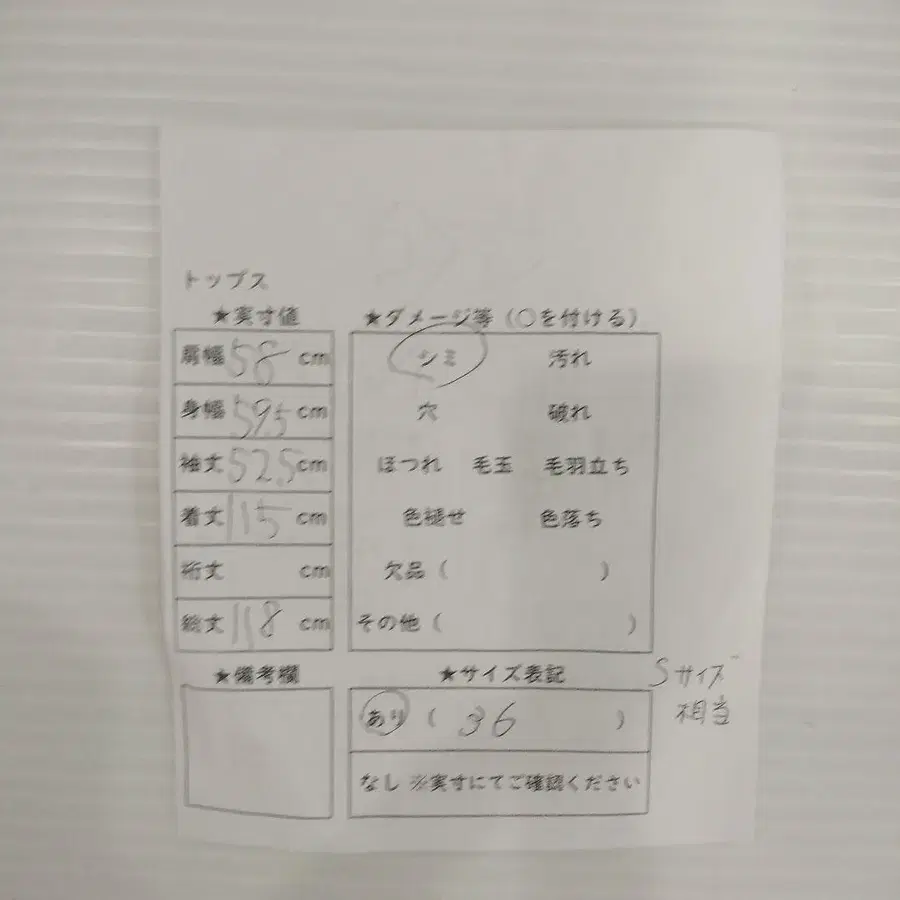 トップス
★実寸値
肩幅 58 cm
身幅 59.5 cm
袖丈 52.5 cm
着丈 115 cm
裄丈 cm
総丈 118 cm
★備考欄
★ダメージ等（○を付ける）
シミ 汚れ
穴 破れ
ほつれ 毛玉 毛羽立ち
色褪せ 色落ち
欠品（ ）
その他（ ）
★サイズ表記
あり（ 36 ）
なし ※実寸にてご確認ください
Sサイズ
相当